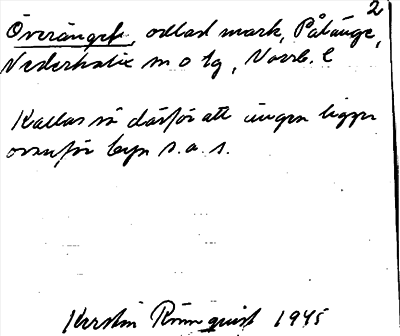 2
Överänget, odlad mark, Pålänge,
Nederkalix sn o tg, Norrb. l
Kallas så därför att ängen ligger
ovanför byn s.a.s.
Kerstin Rönnquist 1945